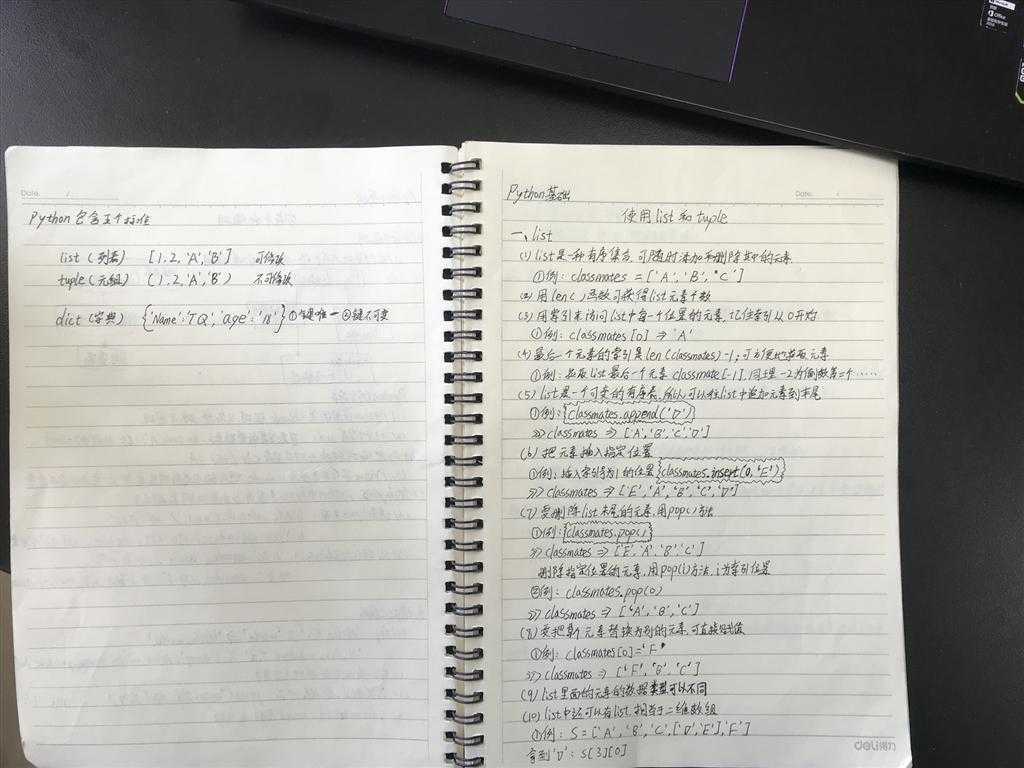 Office
Date.      /
Python包含五个标准
list (列表)  [1.2,'A','B']  可修改
tuple(元组)  (1.2,'A','B')  不可修改
dict (字典)  {'Name':'TQ','age':'18'} ①键唯一 ②键不可变
Python基础
Date.      /
使用list和tuple
一、list
(1) list是一种有序集合,可随时添加和删除其中的元素
①例: classmates = ['A','B','C']
(2) 用len()函数可获得list元素个数
(3) 用索引来访问list中每一个位置的元素,记住索引从0开始
①例: classmates[0] => 'A'
(4) 最后一个元素的索引是len(classmates)-1;可方便地获取元素
①例:获取list最后一个元素 classmate[-1],同理-2为倒数第二个……
(5) list是一个可变的有序表,所以可以往list中追加元素到末尾
①例: classmates.append('D')
=>> classmates => ['A','B','C','D']
(6) 把元素插入指定位置
①例:插入索引号为1的位置 classmates.insert(0,'E')
=>> classmates => ['E','A','B','C','D']
(7) 要删除list末尾的元素,用pop()方法
①例: classmates.pop()
=>> classmates => ['E','A','B','C']
删除指定位置的元素,用pop(i)方法,i为索引位置
②例: classmates.pop(0)
=>> classmates => ['A','B','C']
(8) 要把某个元素替换为别的元素,可直接赋值
①例: classmates[0]='F'
=>> classmates => ['F','B','C']
(9) list里面的元素的数据类型可以不同
(10) list中还可以有list,相当于二维数组
①例: S=['A','B','C',['D','E'],'F']
拿到'D': S[3][0]
deli得力